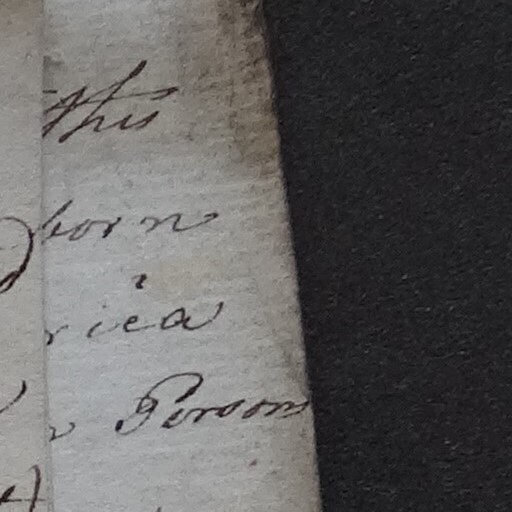 this
born
rica
Persons